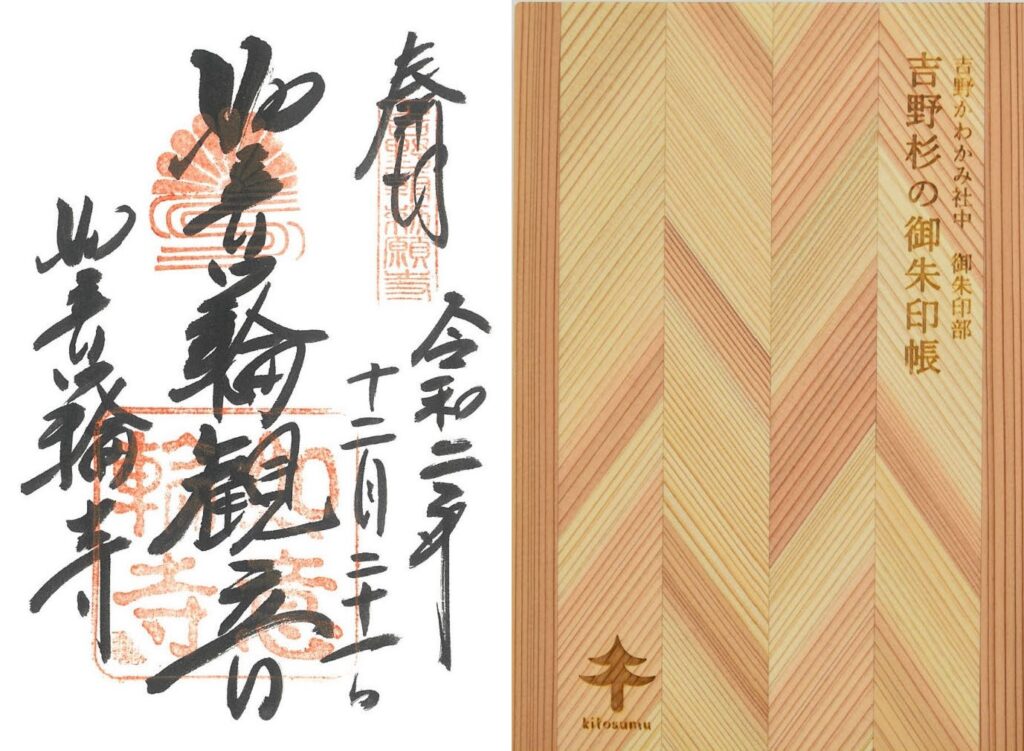 奉拝
願寺
令和二年
十二月二十一日
如意輪観音
如意輪寺
如意輪寺
吉野かわかみ社中 御朱印部
吉野杉の御朱印帳
kitosumu